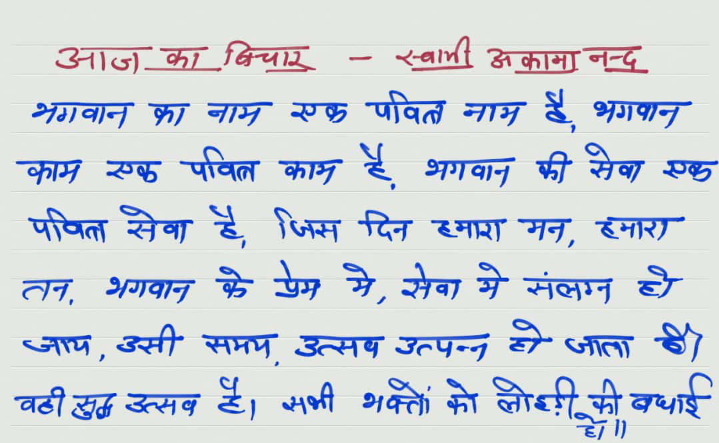 आज का विचार - स्वामी अकामानन्द
भगवान का नाम एक पवित्र नाम है, भगवान
काम एक पवित्र काम है, भगवान की सेवा एक
पवित्र सेवा है, जिस दिन हमारा मन, हमारा
तन, भगवान के प्रेम मे, सेवा मे संलग्न हो
जाय, उसी समय, उत्सव उत्पन्न हो जाता है।
वही सुद्ध उत्सव है। सभी भक्तों को लोहड़ी की बधाई
हो॥